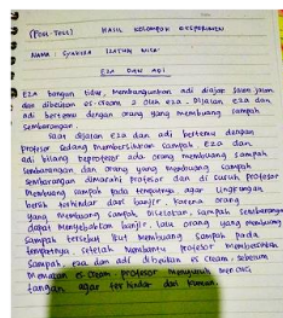 (POST-TEST) HASIL KELOMPOK EKSPERIMEN
NAMA : SYAKIRA ILATUN NISA'
EZA DAN ADI
EZA bangun tidur, membangunkan adi diajak jalan jalan
dan dibelikan es.cream 2 oleh eza. Dijalan eza dan
adi bertemu dengan orang yang membuang sampah
sembarangan.
Saat dijalan eza dan adi bertemu dengan
Profesor sedang membersihkan sampah, Eza dan
adi bilang keprofesor ada orang membuang sampah
sembarangan dan orang yang membuang sampah
sembarangan dimarahi profesor dan di suruh profesor
Membuang sampah pada tempatnya agar lingkungan
bersih terhindar dari banjir, karena orang
yang membuang sampah diselokan, sampah sembarangan
dapat menyebabkan banjir, lalu orang yang membuang
sampah tersebut ikut membuang sampah pada
tempatnya, setelah membantu profesor membersihkan
sampah, eza dan adi dibelikan es cream, sebelum
memakan es.cream profesor menyuruh mencuci
tangan agar terhindar dari kuman.